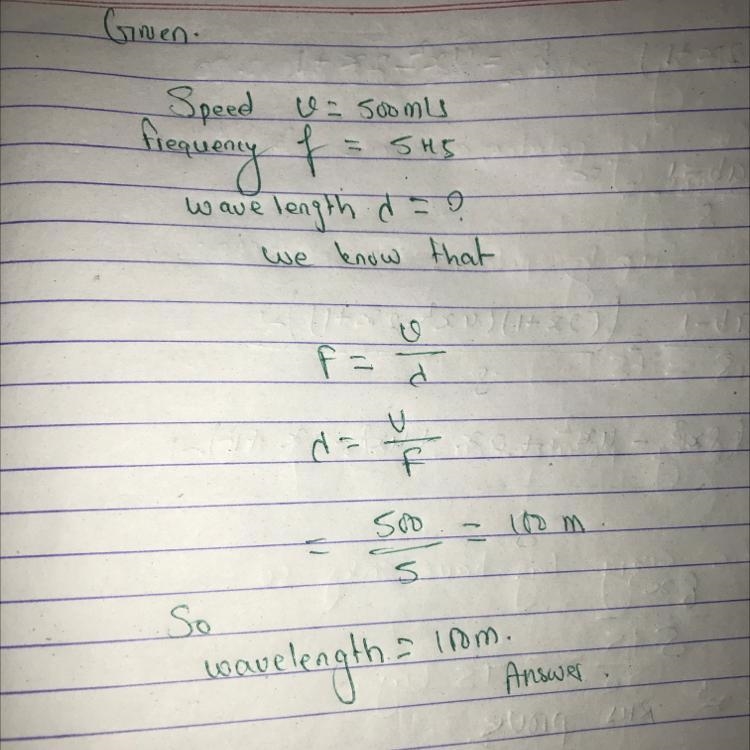 Given.
Speed v = 500m/s
frequency f = 5 HS
wavelength d = ?
we know that
F = v/d
d = v/F
= 500/5 = 100 m.
So
wavelength = 100m.
Answer.